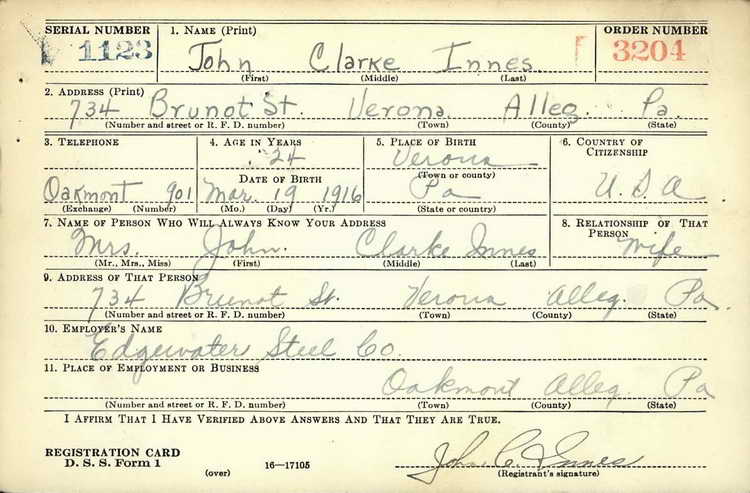 SERIAL NUMBER 1. NAME (Print) ORDER NUMBER
1123 John Clarke Innes 3204
(First) (Middle) (Last)
2. ADDRESS (Print)
734 Brunot St. Verona Alleg. Pa.
(Number and street or R. F. D. number) (Town) (County) (State)
3. TELEPHONE 4. AGE IN YEARS 5. PLACE OF BIRTH 6. COUNTRY OF CITIZENSHIP
24 Verona
(Town or county)
DATE OF BIRTH
Oakmont 901 Mar. 19 1916 Pa U.S.A
(Exchange) (Number) (Mo.) (Day) (Yr.) (State or country)
7. NAME OF PERSON WHO WILL ALWAYS KNOW YOUR ADDRESS 8. RELATIONSHIP OF THAT PERSON
Mrs. John. Clarke Innes Wife
(Mr., Mrs., Miss) (First) (Middle) (Last)
9. ADDRESS OF THAT PERSON
734 Brunot St. Verona Alleg. Pa
(Number and street or R. F. D. number) (Town) (County) (State)
10. EMPLOYER'S NAME
Edgewater Steel Co.
11. PLACE OF EMPLOYMENT OR BUSINESS
Oakmont Alleg. Pa
(Number and street or R. F. D. number) (Town) (County) (State)
I AFFIRM THAT I HAVE VERIFIED ABOVE ANSWERS AND THAT THEY ARE TRUE.
REGISTRATION CARD
D. S. S. Form 1 (over) 16—17105 John C. Innes
(Registrant's signature)